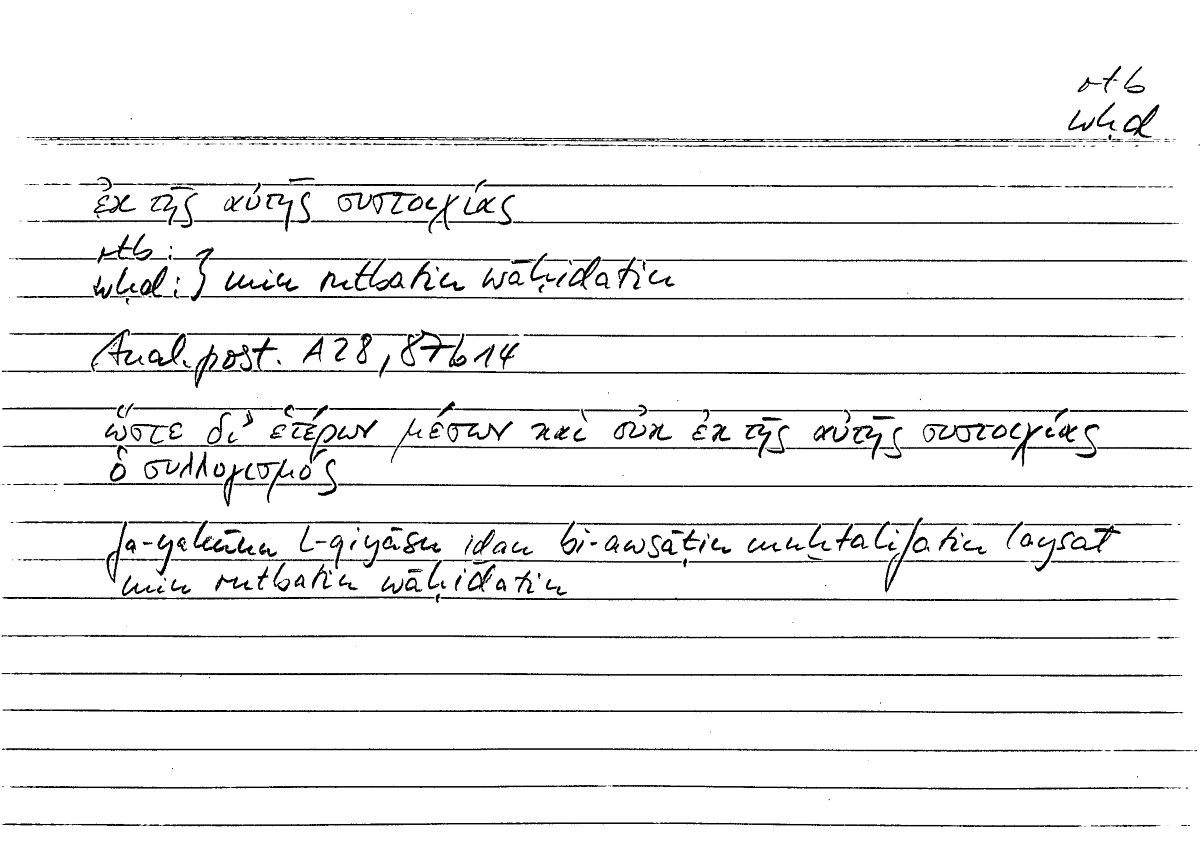 rtb
wḥd
ἐκ τῆς αὐτῆς συστοιχίας
rtb:
wḥd: } min rutbatin wāḥidatin
Anal. post. A 28, 87b14
ὥστε δι' ἑτέρων μέσων καὶ οὐκ ἐκ τῆς αὐτῆς συστοιχίας
ὁ συλλογισμός
fa-yakūnu l-qiyāsu iḏan bi-awsāṭin muḫtalifatin laysat
min rutbatin wāḥidatin